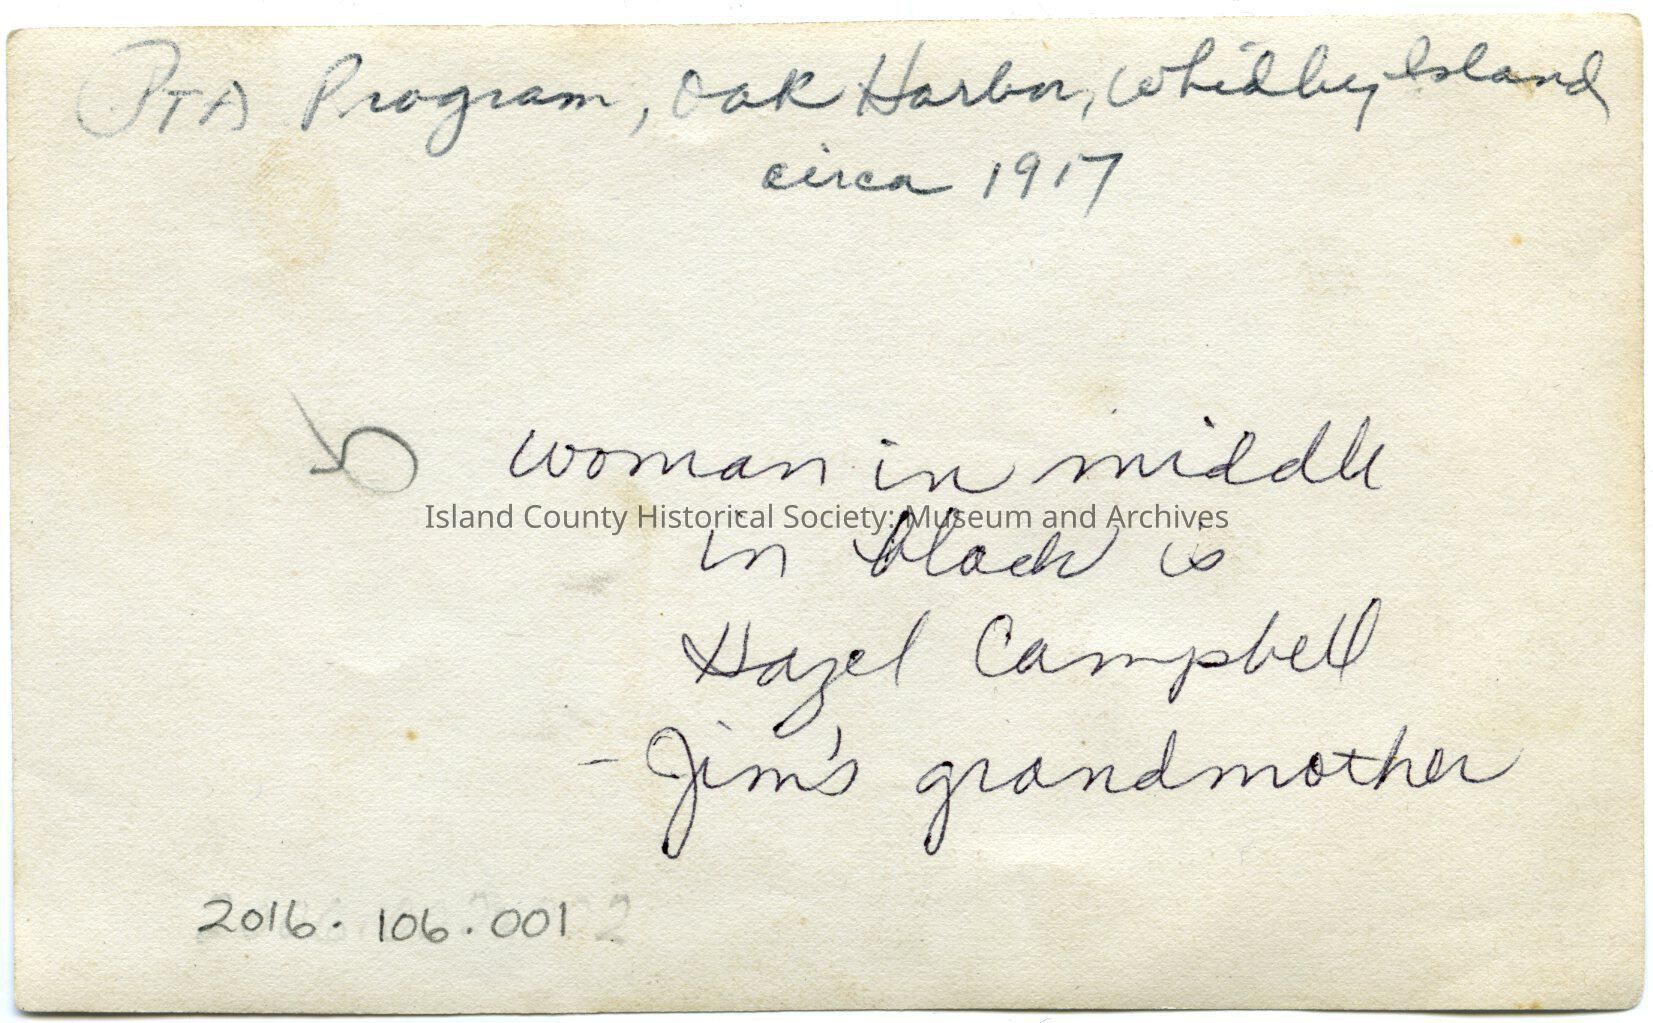 PTA Program, Oak Harbor, Whidby Island
circa 1917
woman in middle
Island County Historical Society: Museum and Archives
in black is
Hazel Campbell
- Jim's grandmother
2016.106.001